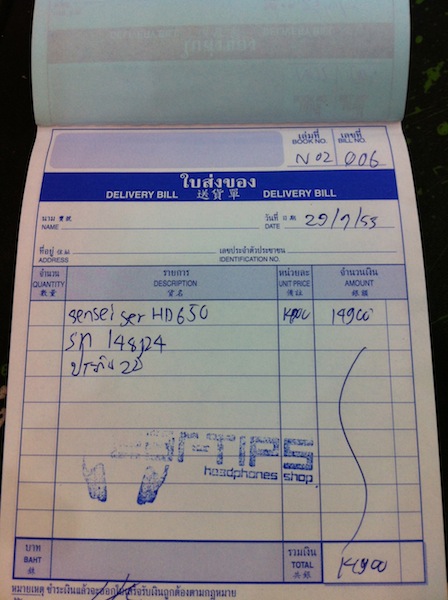 เล่มที่ เลขที่
BOOK NO. BILL NO.
N02 006
ใบส่งของ
DELIVERY BILL 送貨單 DELIVERY BILL
นาม 寶號
NAME
วันที่ 日期
DATE 29/7/53
ที่อยู่ 住址
ADDRESS
เลขประจำตัวประชาชน
IDENTIFICATION NO.
จำนวน รายการ หน่วยละ จำนวนเงิน
QUANTITY DESCRIPTION UNIT PRICE AMOUNT
數量 貨名 備註 銀額
Senseiser HD650 14900 14900
SN 14824
ประกัน 2ปี
headphones shop
บาท รวมเงิน
BAHT TOTAL 14900
銖 共銖
หมายเหตุ ชำระเงินแล้วจะออกใบเสร็จรับเงินถูกต้องตามกฎหมาย